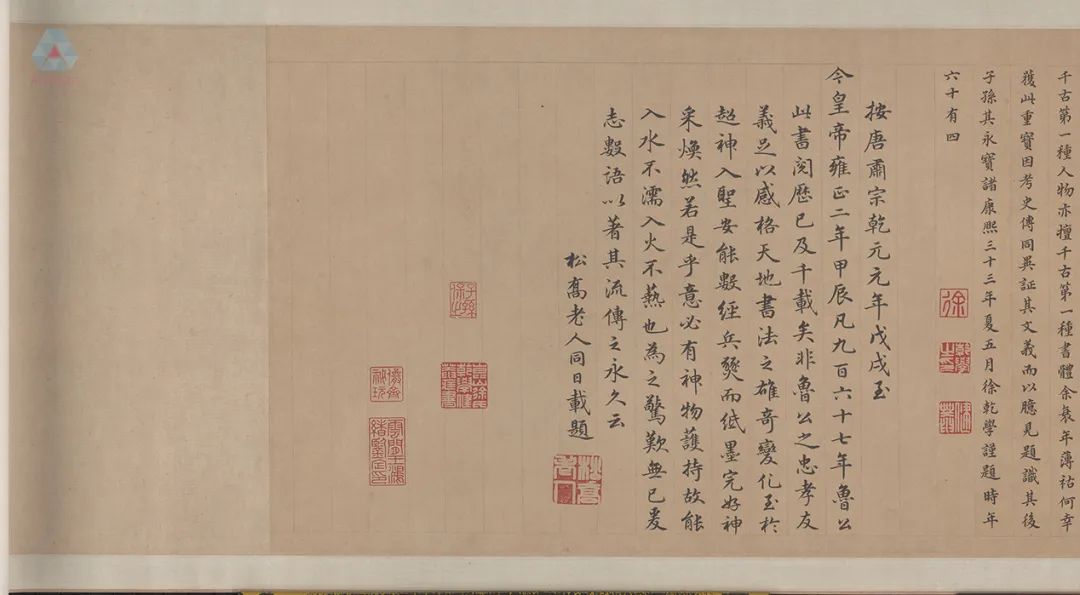 千古第一種人物亦擅千古第一種書體余衰年薄祜何幸
獲此重寶因考史傳同異証其文義而以臆見題識其後
子孫其永寶諸康熙三十三年夏五月徐乾學謹題時年
六十有四
按唐肅宗乾元元年戊戌至
今皇帝雍正二年甲辰凡九百六十七年魯公
此書閱歷已及千載矣非魯公之忠孝友
義足以感格天地書法之雄奇變化至於
超神入聖安能數經兵燹而紙墨完好神
采煥然若是乎意必有神物護持故能
入水不濡入火不爇也為之驚歎無已爰
志數語以著其流傳之永久云
松喬老人同日載題
徐
乾學之印
松喬老人